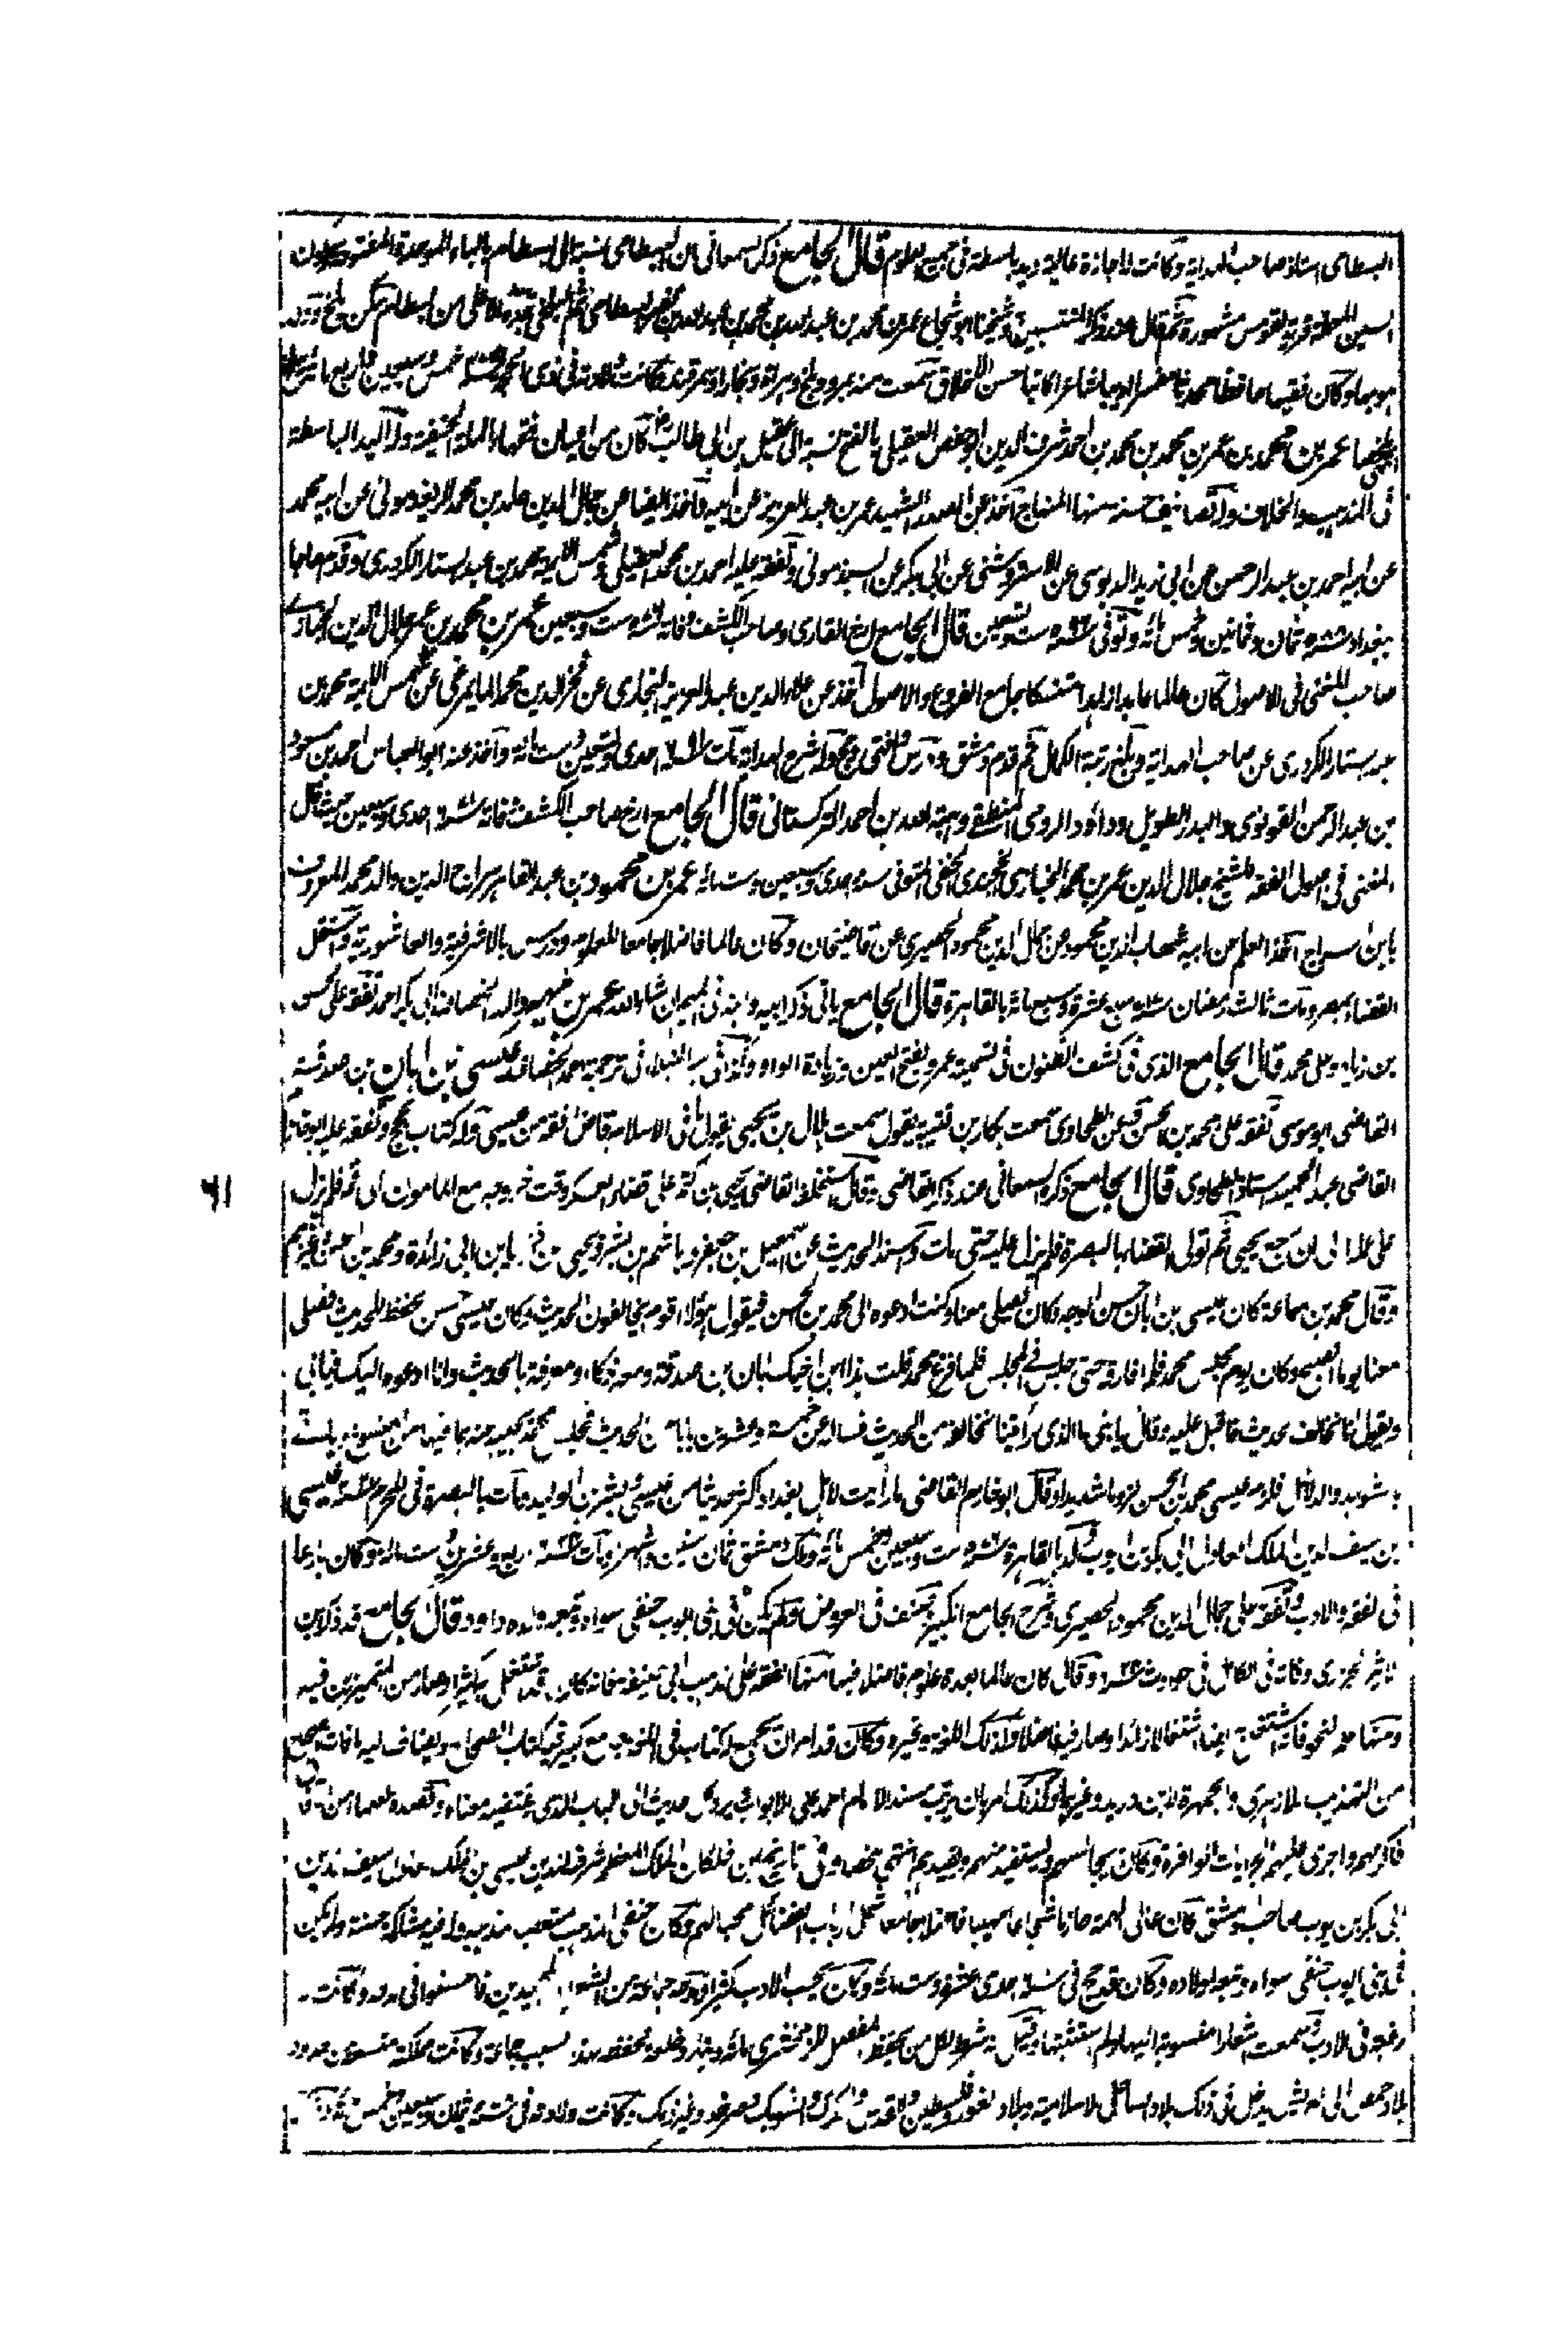 البسطامي استاذ صاحب الهداية وكانت له اجازة عالية ويد باسطة في جميع العلوم قال الجامع ذكر السمعاني ان البسطامي نسبة الى بسطام بالباء الموحدة المفتوحة وسكون
السين المهملة قرية بقومس مشهورة ثم قال عند ذكر المنتسبين وشيخنا ابو شجاع عمر بن محمد بن عبد الله بن محمد بن عبد الله بن نصر البسطامي ثم البلخي من بسطام سكن بلخ
هو بها وكان فقيها حافظا محدثا مفسرا اديبا شاعرا كاتبا حسن الاخلاق سمعت منه بمرو وبلخ وهراة وبخارا وسمرقند وكانت ولادته في ذي الحجة سنة خمس وسبعين واربع مائة
عمر بن محمد بن عمر بن محمد بن محمد بن احمد شرف الدين ابو حفص العقيلي بالفتح نسبة الى عقيل بن ابي طالب كان من اعيان فقهاء الملة الحنيفة وله اليد الباسطة
في المذهب والخلاف وله تصانيف حسنة منها المنهاج اخذ عن الصدر الشهيد عمر بن عبد العزيز عن ابيه واخذ ايضا عن جمال الدين حامد بن محمد الريغدموني عن ابيه محمد
عن ابيه احمد بن عبد الرحمن عن ابي زيد الدبوسي عن الاستروشني عن ابي بكر عن السبذموني وتفقه عليه احمد بن محمد العقيلي وشمس الايمة محمد بن عبد الستار الكردري وقدم حاجا
ببغداد سنة ثمان وثمانين وخمس مائة وتوفي سنة ست وتسعين قال الجامع ارخ القاري وصاحب الكشف وفاته سنة ست وسبعين عمر بن محمد بن عمر جلال الدين الخبازي
صاحب المغني في الاصول كان عالما عابدا زاهدا متنسكا جامع الفروع والاصول اخذ عن علاء الدين عبد العزيز البخاري عن فخر الدين محمد المايمرغي عن شمس الايمة محمد بن
عبد الستار الكردري عن صاحب الهداية وبلغ رتبة الكمال ثم قدم دمشق ودرس وافتى وحج وله شرح الهداية مات سنة احدى وتسعين وست مائة واخذ عنه ابو العباس احمد بن مسعود
بن عبد الرحمن القونوي والبدر الطويل وداود الرومي المنطقي وهبة الله بن احمد التركستاني قال الجامع ارخ صاحب الكشف وفاته سنة احدى وسبعين حيث قال
المغني في اصول الفقه للشيخ جلال الدين عمر بن محمد الخبازي الخجندي الحنفي المتوفى سنة احدى وسبعين وست مائة عمر بن محمود بن عبد القاهر سراج الدين والد محمد المعروف
بابن السراج اخذ العلم عن ابيه شهاب الدين محمود عن جمال الدين محمود الحصيري عن قاضيخان وكان عالما فاضلا جامعا للعلوم ودرس بالاشرفية والعاشورية واستقل
القضاء بمصر ومات ثالث رمضان سنة سبع عشرة وسبع مائة بالقاهرة قال الجامع ياتي ذكر ابيه وابنه في الميم ان شاء الله عمر بن مهير والد الخصاف ابي بكر احمد تفقه على الحسن
بن زياد وعلى محمد قال الجامع الذي في كشف الظنون في تسمية عمرو بفتح العين وزيادة الواو وكذا في سير النبلاء في ترجمة احمد الخصاف عيسى بن ابان بن صدقة
القاضي ابو موسى تفقه على محمد بن الحسن وعن الطحاوي سمعت بكار بن قتيبة يقول سمعت هلال بن يحيى يقول ما في الاسلام قاض افقه من عيسى وله كتاب الحج وتفقه عليه ابو خازم
القاضي عبد الحميد استاذ الطحاوي قال الجامع ذكره السمعاني عند ذكر القاضي وقال استخلفه القاضي يحيى بن اكثم على قضاء العسكر وقت خروجه مع المامون الى فم فلم يزل
على عمله الى ان رجع يحيى ثم تولى القضاء بالبصرة فلم يزل عليه حتى مات واسند الحديث عن اسمعيل بن جعفر وهاشم بن بشر ويحيى بن زكريا بن ابي زائدة ومحمد بن الحسن وغيرهم
وقال محمد بن سماعة كان عيسى بن ابان حسن الوجه وكان يصلي معنا وكنت ادعوه الى محمد بن الحسن فيقول هؤلاء قوم يخالفون الحديث وكان عيسى حسن الحفظ للحديث فصلى
معنا يوما الصبح وكان يوم مجلس محمد فلم افارقه حتى جلس في المجلس فلما فرغ محمد قلت هذا ابن اخيك ابان بن صدقة ومعه ذكاء ومعرفة بالحديث وانا ادعوه اليك فيابى
ويقول انا نخالف الحديث فاقبل عليه وقال يا بني ما الذي رايتنا نخالفه من الحديث فساله عن خمسة وعشرين بابا من الحديث فجلس محمد يجيبه عنها بما فيها من المنسوخ وياتي
بشواهد والدلائل فلزم عيسى محمد بن الحسن لزوما شديدا وقال ابو خازم القاضي ما رايت لاهل بغداد اكثر حديثا من عيسى وبشر بن الوليد ومات بالبصرة في المحرم سنة عيسى
بن سيف الدين الملك العادل ابي بكر بن ايوب ولد بالقاهرة سنة ست وسبعين وخمس مائة وملك دمشق ثمان سنين واشهر ومات سنة اربع وعشرين وست مائة وكان بارعا
في الفقه والادب وتفقه على جمال الدين محمود الحصيري وشرح الجامع الكبير وصنف في العروض ولم يكن في بني ايوب حنفي سواه وتبعه ولده داود قال الجامع قد ذكر ابن
الاثير الجزري وفاته في الكامل في حوادث سنة وقال كان عالما بعدة علوم فاضلا فيها منها الفقه على مذهب ابي حنيفة فانه كان قد اشتغل به كثيرا وصار من المتميزين فيه
ومنها علم النحو فانه اشتغل به ايضا اشتغالا زائدا وصار فيه فاضلا وكذلك اللغة وغيره وكان قد امر ان يجمع له كتاب في اللغة جامع كبير فيه كتاب الصحاح ويضاف اليه ما فات الصحاح
من التهذيب للازهري والجمهرة لابن دريد وغيرهما وكذلك امر بان يرتب مسند الامام احمد على الابواب ويرد كل حديث الى الباب الذي يقتضيه معناه وقصده العلماء من الآفاق
فاكرمهم واجرى عليهم الجرايات الوافرة وكان يجالسهم ويستفيد منهم ويفيدهم انتهى ملخصا وفي تاريخ ابن خلكان الملك المعظم شرف الدين عيسى بن الملك العادل سيف الدين
ابي بكر بن ايوب صاحب دمشق كان عالي الهمة حازما شجاعا مهيبا فاضلا جامعا شمل ارباب الفضائل محبا لهم وكان حنفي المذهب متعصبا لمذهبه وله فيه مشاركة حسنة ولم يكن
في بني ايوب حنفي سواه وتبعه اولاده وكان قد حج في سنة احدى عشرة وست مائة وكان يحب الادب كثيرا ومدحه جماعة من الشعراء المجيدين فاحسنوا في مدحه وكانت له
رغبة في الادب وسمعت اشعارا منسوبة اليه ولم استثبتها وقيل انه شرط لكل من يحفظ المفصل للزمخشري مائة دينار وخلعة فحفظه لهذا السبب جماعة وكانت مملكته متسعة من حدود
بلاد حمص الى العريش يدخل في ذلك بلاد الساحل الاسلامية وبلاد الغور وفلسطين والقدس والكرك والشوبك وصرخد وغير ذلك وكانت ولادته في سنة ثمان وسبعين وخمس مائة
٦١